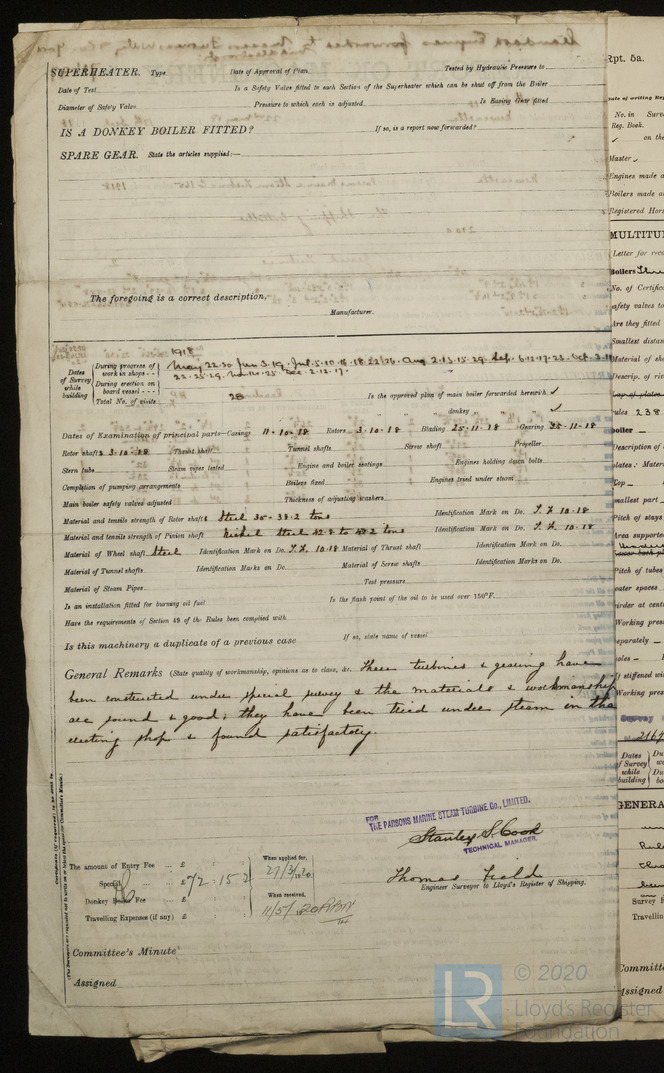 SUPERHEATER. Type Date of Approval of Plan Tested by Hydraulic Pressure to
Date of Test Is a Safety Valve fitted to each Section of the Superheater which can be shut off from the Boiler
Diameter of Safety Valve Pressure to which each is adjusted Is Easing Gear fitted
IS A DONKEY BOILER FITTED? If so, is a report now forwarded?
SPARE GEAR. State the articles supplied:—
The foregoing is a correct description,
Manufacturer.
1918
Dates of Survey while building
During progress of work in shops - - May 22.30 Jun 3.19. Jul. 5.10.16.18.22/26. Aug 2.13.15.29. Sep. 6.12.17.23. Oct. 3.11
During erection on board vessel - - - 22.25.29. Nov. 14.25. Dec. 2.12.17.
Total No. of visits 28 Is the approved plan of main boiler forwarded herewith ✓
" " " donkey " " " ✓
Dates of Examination of principal parts—Casings 11-10-18 Rotors 3-10-18 Blading 25-11-18 Gearing 25-11-18
Rotor shafts 3-10-18 Thrust shaft Tunnel shafts Screw shaft Propeller
Stern tube Steam pipes tested Engine and boiler seatings Engines holding down bolts
Completion of pumping arrangements Boilers fixed Engines tried under steam
Main boiler safety valves adjusted Thickness of adjusting washers
Material and tensile strength of Rotor shafts Steel 35-38.2 tons Identification Mark on Do. T.F. 10-18
Material and tensile strength of Pinion shaft Nickel Steel 42.8 to 47.2 tons Identification Mark on Do. T.F. 10-18
Material of Wheel shaft Steel Identification Mark on Do. T.F. 10-18 Material of Thrust shaft Identification Mark on Do.
Material of Tunnel shafts Identification Marks on Do. Material of Screw shafts Identification Marks on Do.
Material of Steam Pipes Test pressure
Is an installation fitted for burning oil fuel Is the flash point of the oil to be used over 150°F.
Have the requirements of Section 49 of the Rules been complied with
Is this machinery a duplicate of a previous case If so, state name of vessel
General Remarks (State quality of workmanship, opinions as to class, &c. These turbines & gearing have
been constructed under special survey & the materials & workmanship
are sound & good; they have been tried under steam in the
erecting shop & found satisfactory.
FOR THE PARSONS MARINE STEAM TURBINE Co., LIMITED.
Stanley S. Cook
TECHNICAL MANAGER.
The amount of Entry Fee ... £ When applied for,
Special ... £ 72 : 15 : 2 27/3/1920
Donkey Boiler Fee ... £ When received,
Travelling Expenses (if any) £ 11/5/1920
Thomas Field
Engineer Surveyor to Lloyd's Register of Shipping.
Committee's Minute
Assigned
LR © 2020
Lloyd's Register
Foundation
Rpt. 5a.
No. in
Reg. Book.
on the
Master
Engines made
Boilers made
Registered Hor
MULTITU
Letter for rec
Boilers
No. of Certific
safety valves to
Are they fitted
Smallest distan
Material of sh
Descrip. of riv
rules 238
boiler
Description of
plates: Mater
Top
smallest part
Pitch of stays
Area supported
Pitch of tubes
water spaces
girder at cent
Working pres
separately
holes
stiffened wi
Working pres
Dates of Survey while building
GENERA
Survey F
Travellin
Committe
Assigned